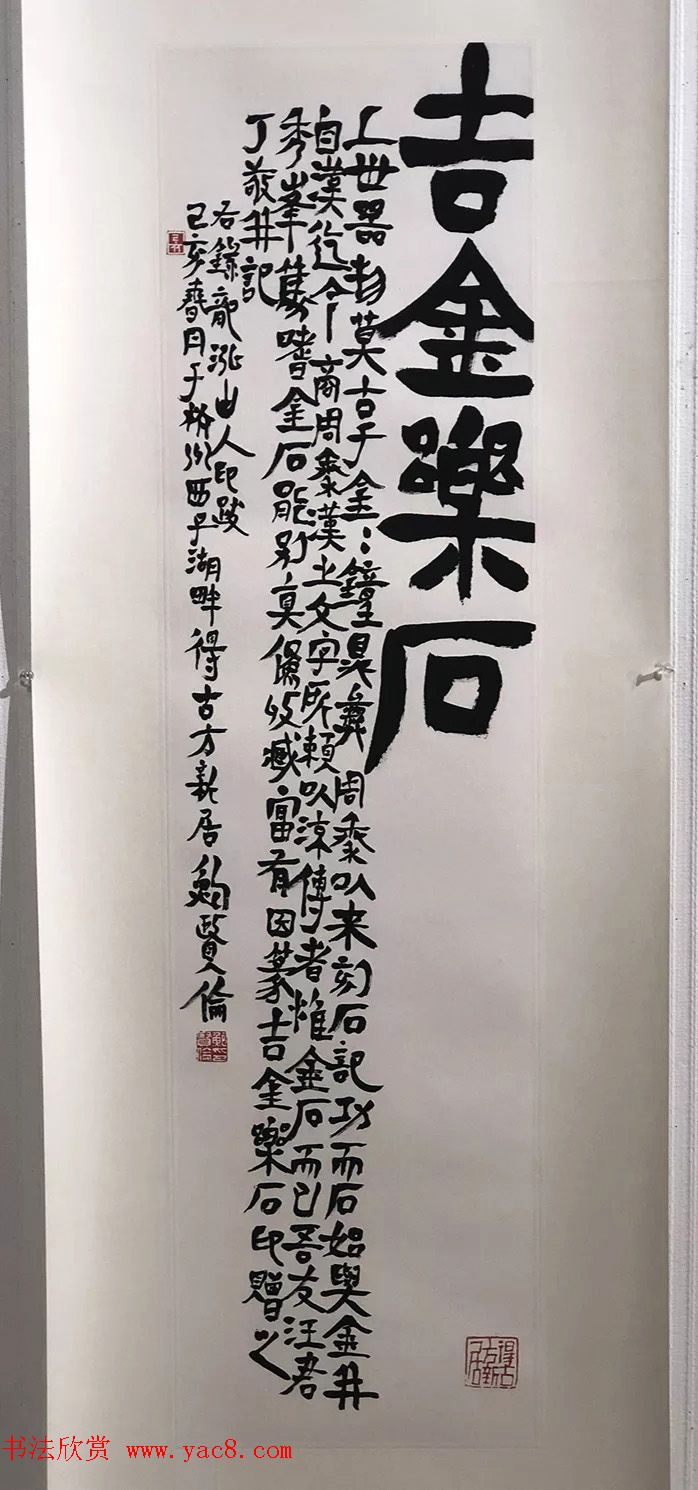 吉金樂石
上世器物莫古于金：鐘鼎彝周秦以来刻石記功而石始與金并
自漢迄今商周秦漢之文字所賴以流傳者惟金石而已吾友汪君
秀峯篤嗜金石能别真偽收臧富有因篆吉金樂石印贈之
丁敬并記
右録龍泓山人印跋
己亥春月于杭州西子湖畔得古方新居鮑賢倫
鮑賢倫
得古方新居
书法欣赏 www.yac8.com